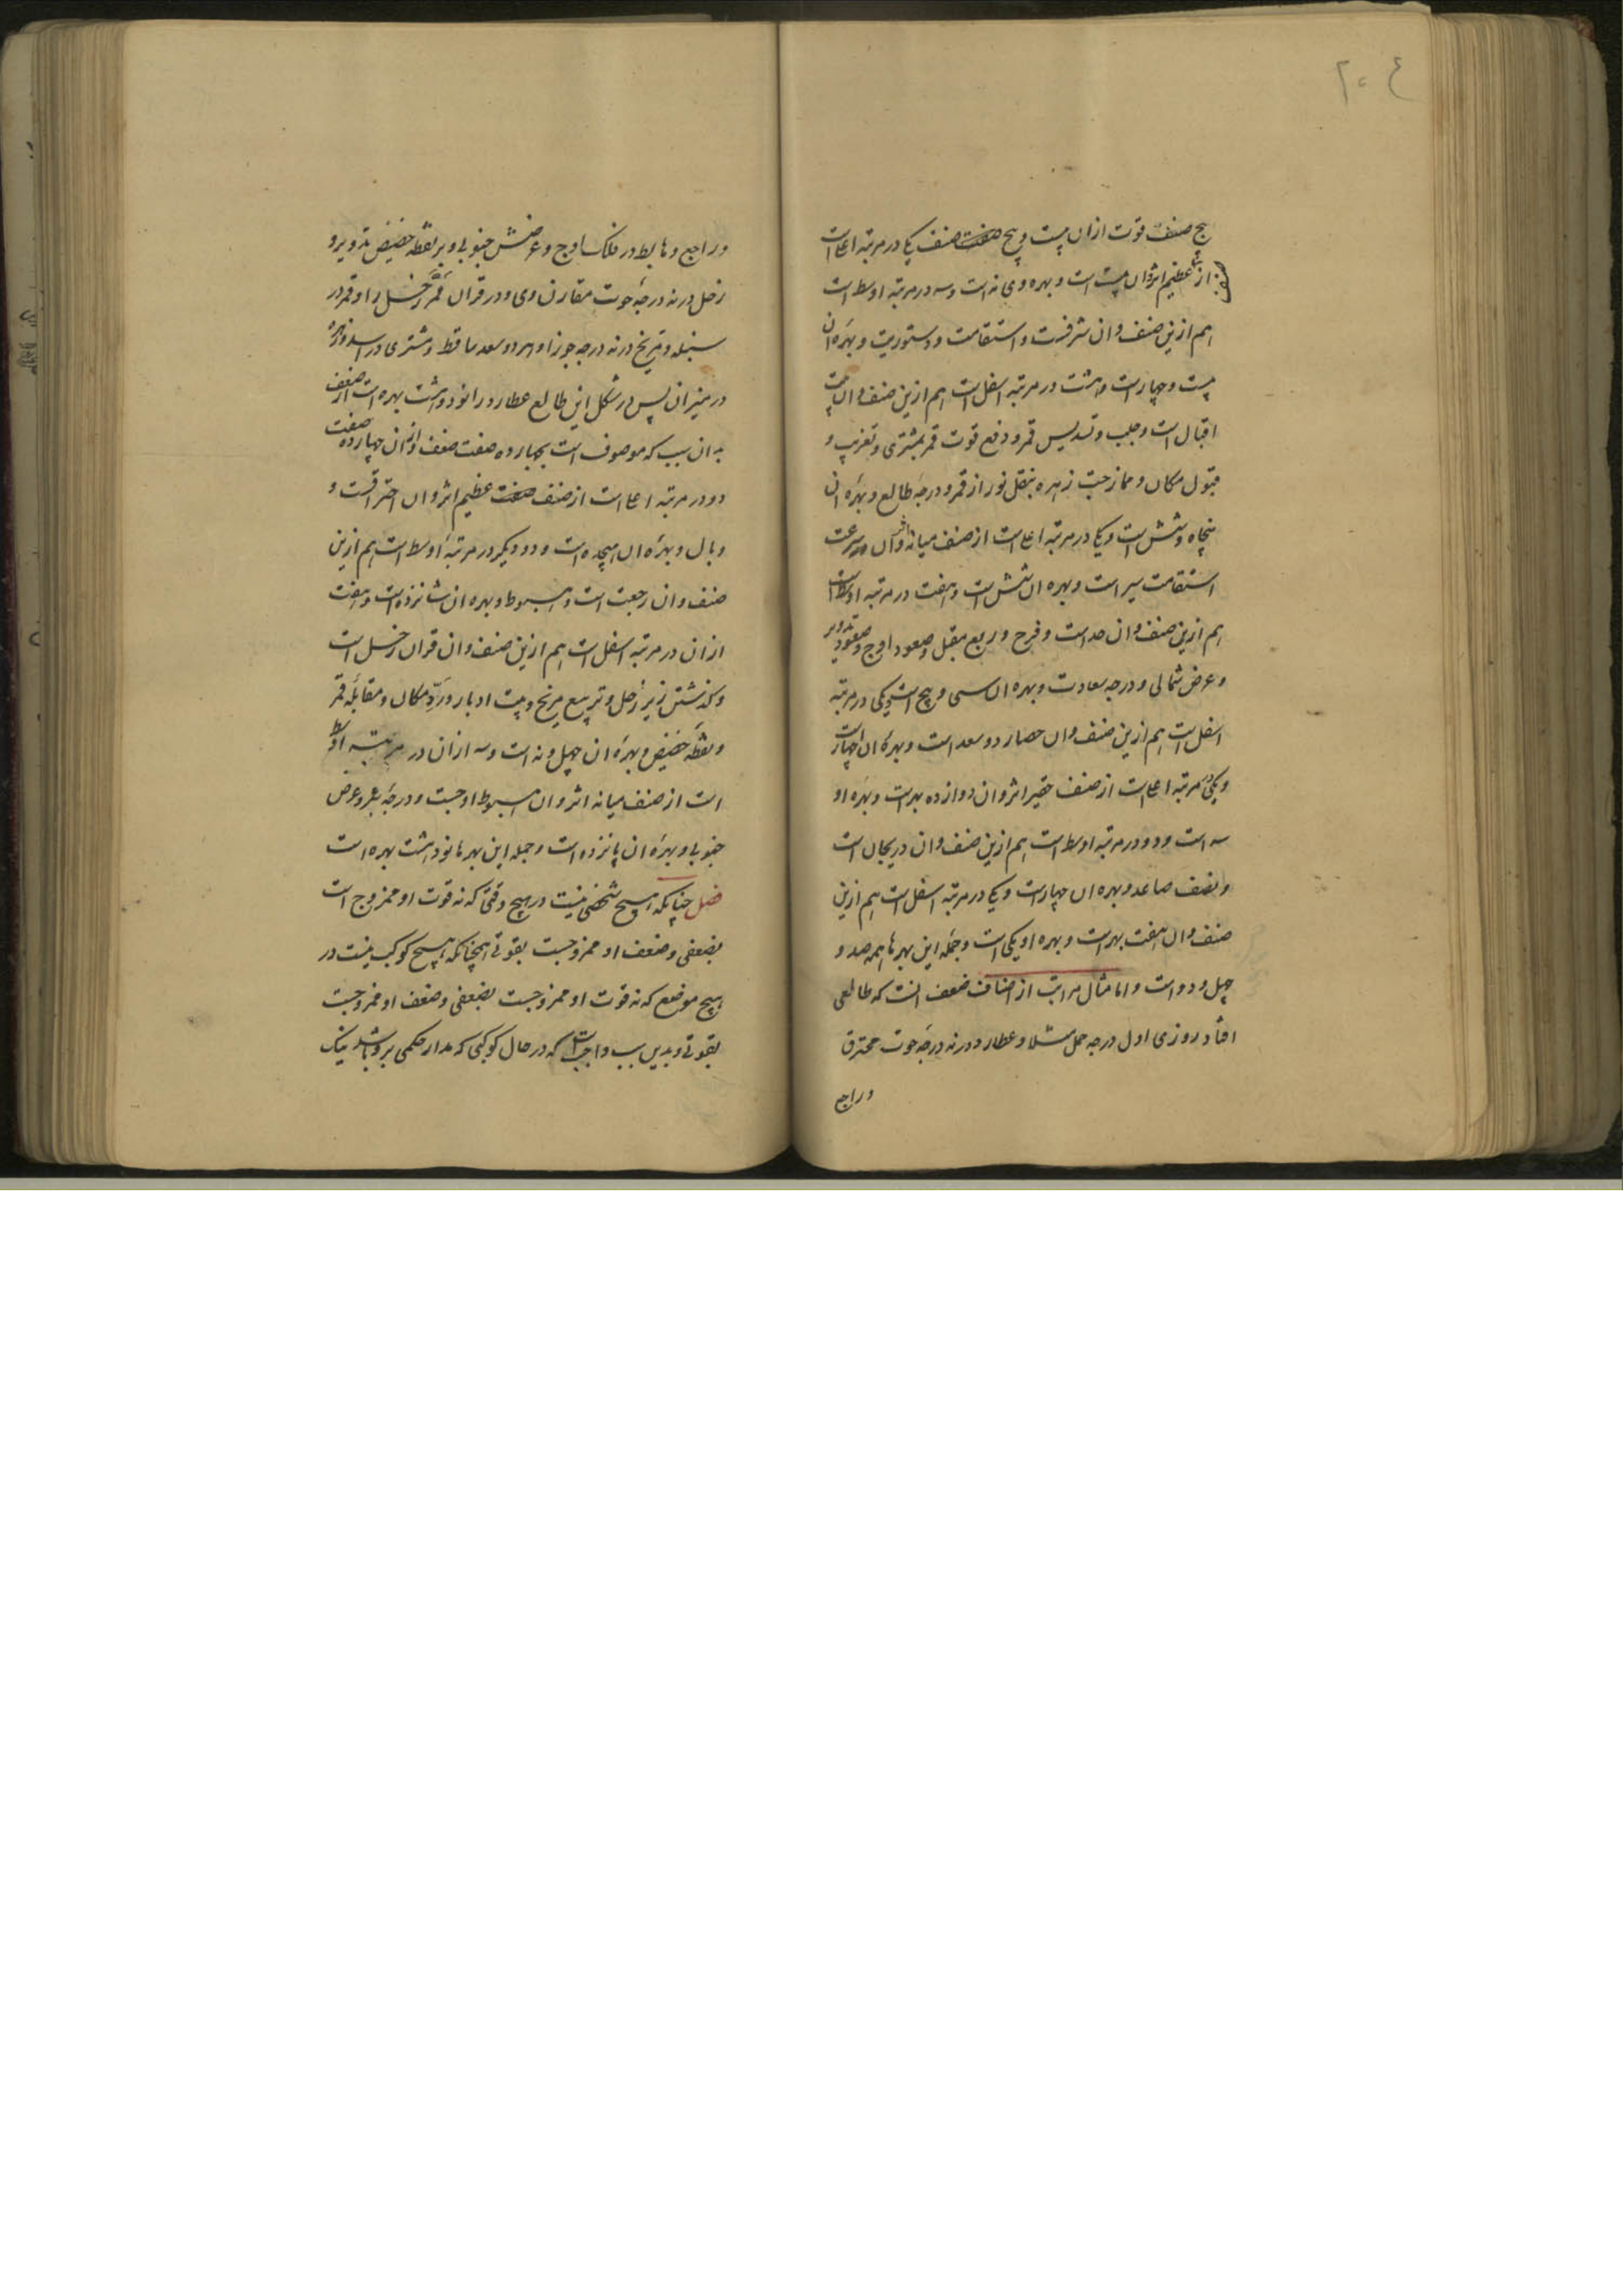 ۲۰۴
پنج صنف قوت ازان بیست و پنج صفت صنف یکی در مرتبه اعلی است
از عظیم اثر وان بیت است و بهره وی نه است و سه در مرتبه اوسط است
هم ازین صنف وان شرفست و استقامت و دستوریت و بهره ان
بیست و چهار است و هشت در مرتبه اسفل است هم ازین صنف وان بیت
اقبال است و حلب و تسدیس قمر و دفع قوت قمر بمشتری و تغریب و
قبول مکان و ممازجت زهره بنقل نور از قمر و درجه طالع و بهره ان
پنجاه و شش است و یکی در مرتبه اعلی است از صنف میانه اثر وان سرعت
استقامت سیر است و بهره ان شش است و هفت در مرتبه اوسط است
هم ازین صنف وان حد است و فرح و ربع مقبل و صعود اوج و صعود تدویر
و عرض شمالی و درجه سعادت و بهره ان سی و پنج است و یکی در مرتبه
اسفل است هم ازین صنف وان حصار دو سعد است و بهره ان چهار است
و یکی در مرتبه اعلی است از صنف حقیر اثر وان دوازده بهر است و بهره او
سه است و دو در مرتبه اوسط است هم ازین صنف وان دریجان است
و نصف صاعد و بهره ان چهار است و یکی در مرتبه اسفل است هم ازین
صنف وان هفت بهر است و بهره او یکی است و جمله این بهرها همه صد و
چهل و دو است و اما مثال مراتب از اصناف ضعف انست که طالعی
افتاد روزی اول درجه حمل مثلا و عطارد در نه درجه حوت محترق
وراجع
وراجع و هابط در فلک اوج و عرضش جنوبی و بر نقطه حضیض تدویر و
زحل در نه درجه حوت مقارن وی و در قران قمر زحل را و قمر در
سنبله و مریخ در نه درجه جوزا و هر دو سعد ساقط و مشتری در اسد و زهره
در میزان پس در شکل این طالع عطارد را نود و هشت بهره است از ضعف
بدان سبب که موصوف است بچهارده صفت ضعف و ازان چهارده صفت
دو در مرتبه اعلی است از صنف صفت عظیم اثر وان احتراقست و
وبال و بهره ان هیجده است و دو دیگر در مرتبه اوسط است هم ازین
صنف وان رجعت است و هبوط و بهره ان شانزده است و هفت
ازان در مرتبه اسفل است هم ازین صنف وان قران زحل است
و گذشتن زیر زحل و تربیع مریخ و بیت ادبار و ردّ مکان و مقابله قمر
و نقطه حضیض و بهره ان چهل و نه است و سه ازان در مرتبه اوسط
است از صنف میانه اثر وان هبوط اوجست و درجه بئر و عرض
جنوبی و بهره ان پانزده است و جمله این بهرها نود و هشت بهره است
فصل چنانکه هیچ شخصی نیست در هیچ وقتی که نه قوت او ممزوج است
بضعفی و ضعف او ممزوجست بقوتی همچنانکه هیچ کوکب نیست در
هیچ موضع که نه قوت او ممزوجست بضعفی و ضعف او ممزوجست
بقوتی و بدین سبب واجب است که در حال کوکبی که مدار حکمی برو باشد نیک